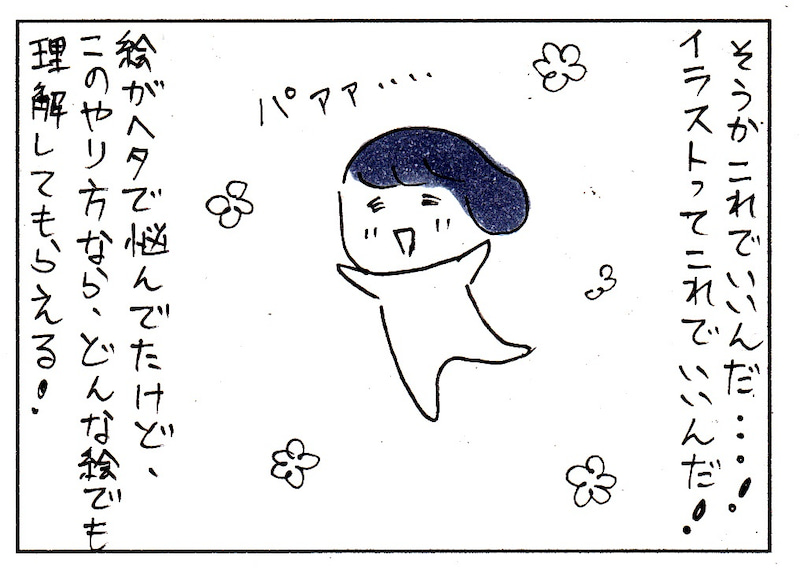 そうかこれでいいんだ・・・！
イラストってこれでいいんだ！
パァァ・・・・
絵がヘタで悩んでたけど、
このやり方なら、どんな絵でも
理解してもらえる！